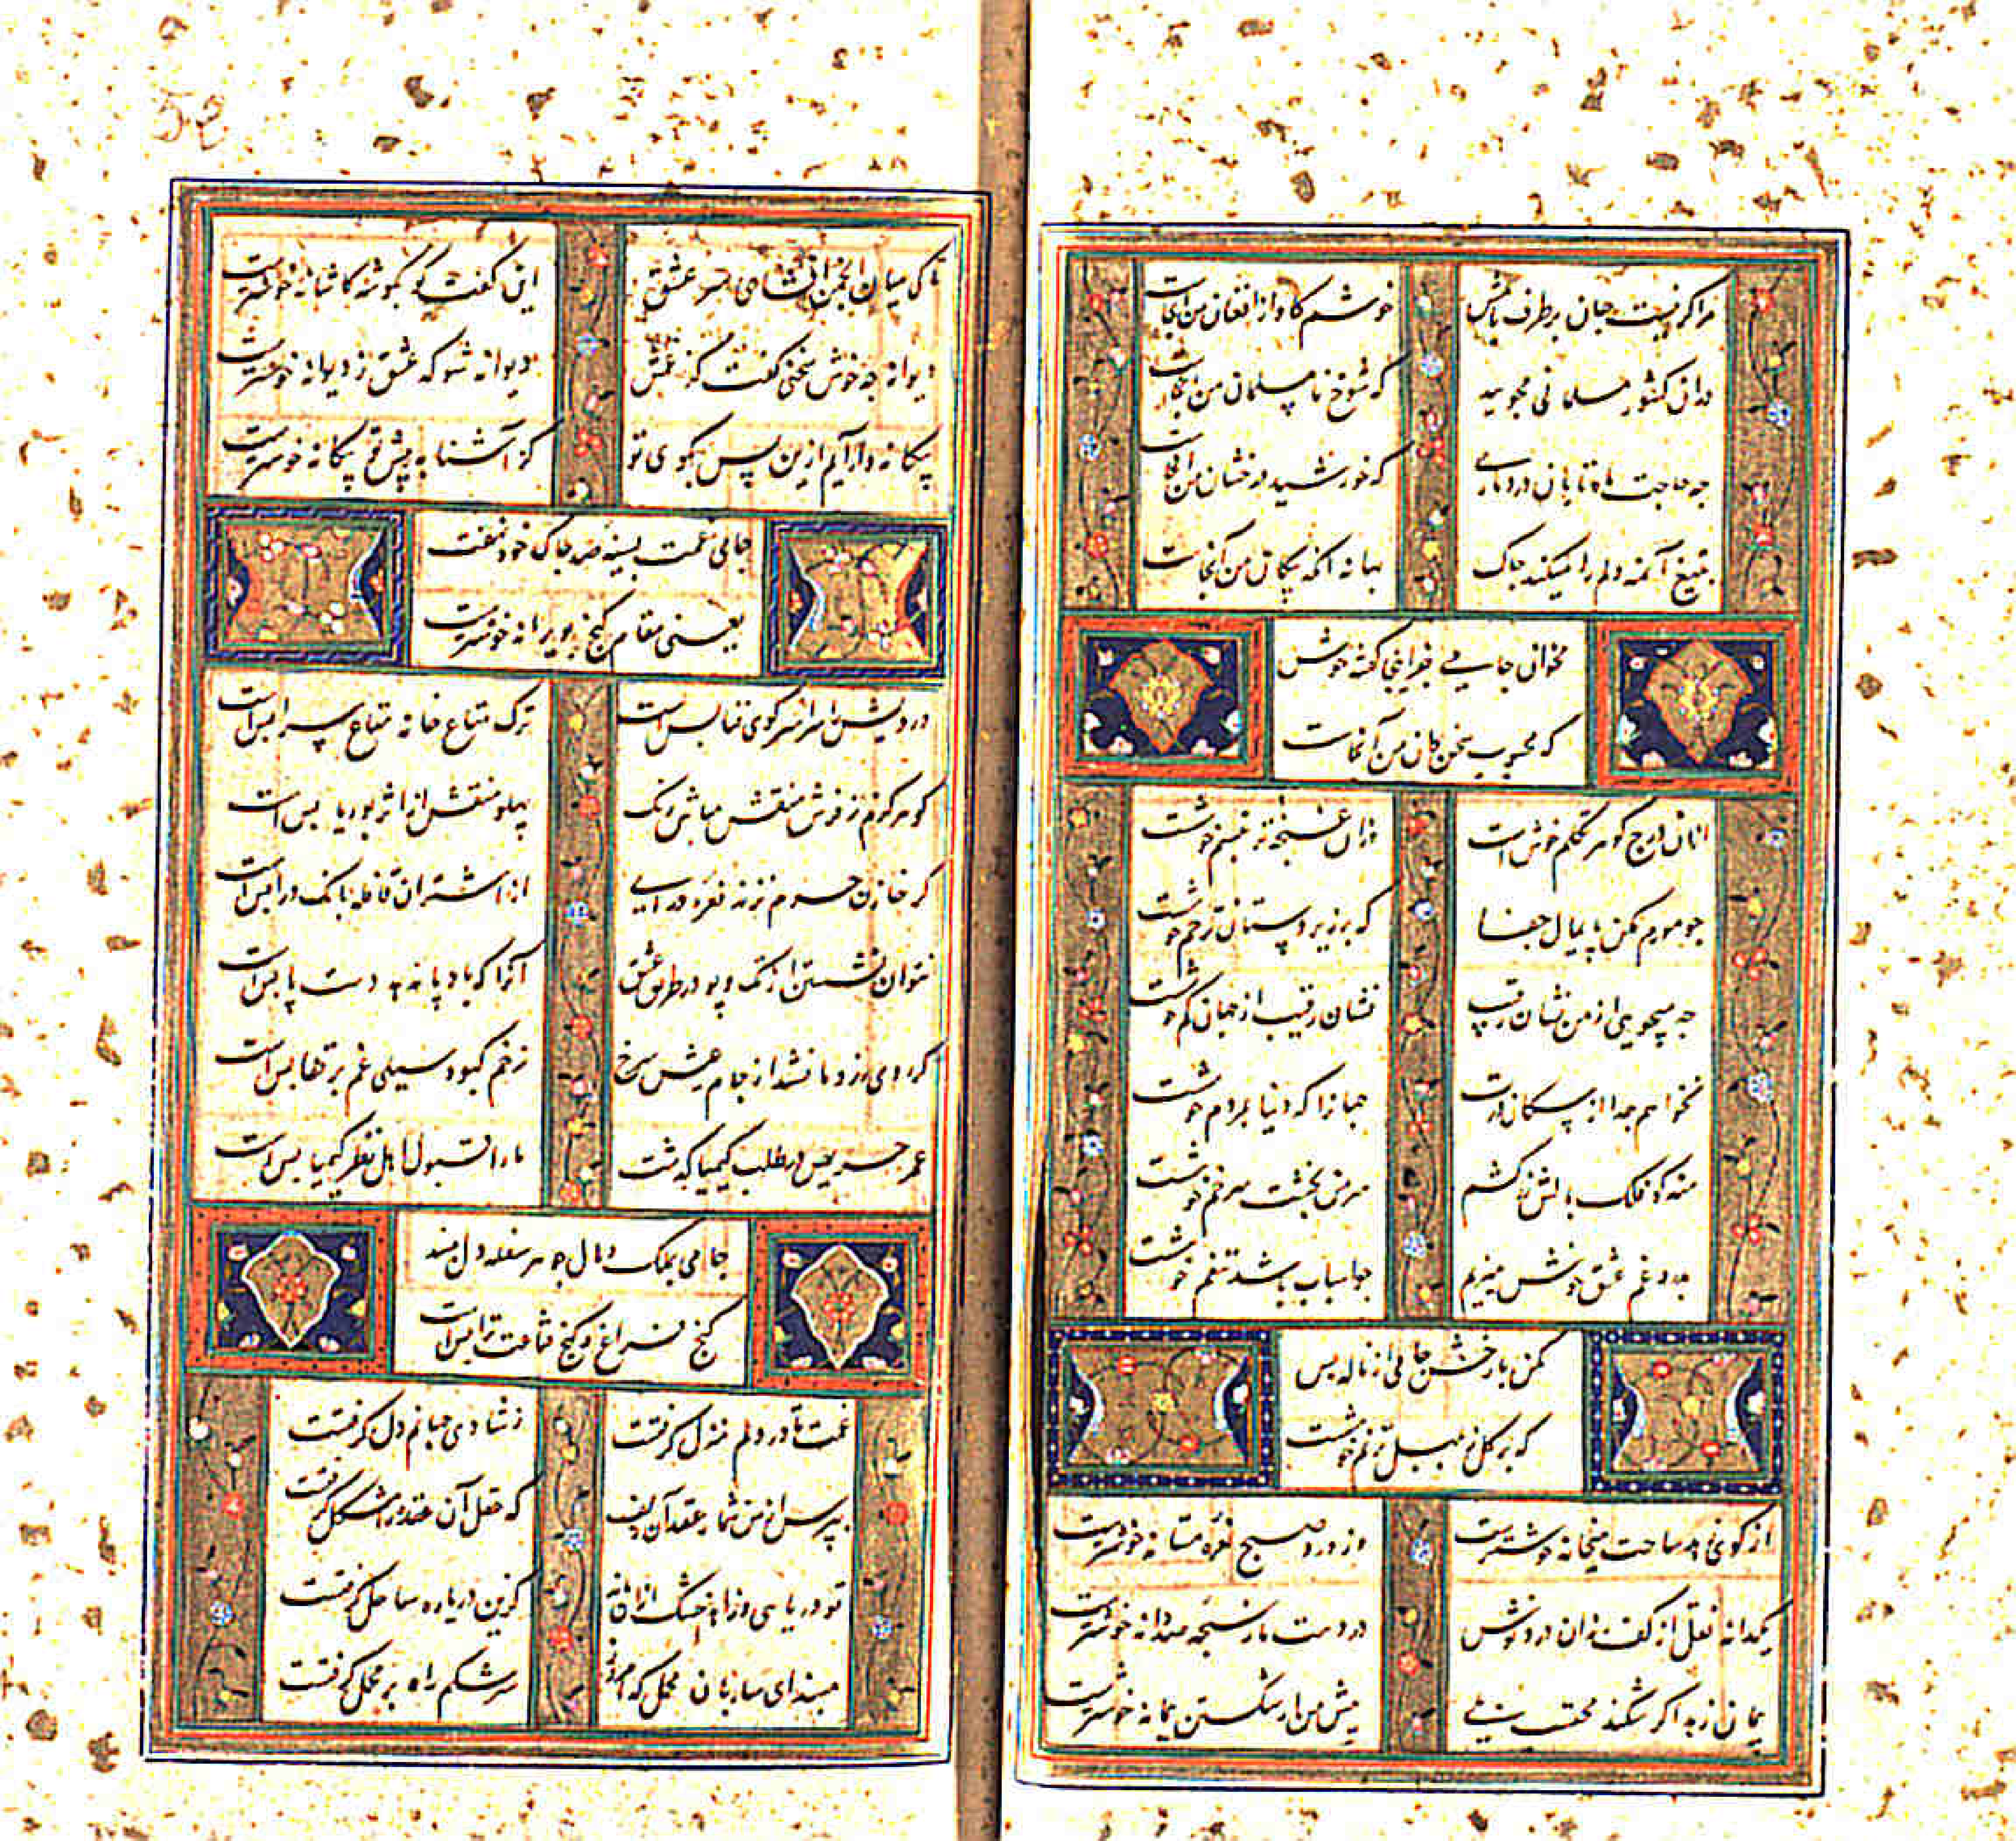 مرا کر نیست جهان بر طرف باش خوشم کاواز افغان من آنجاست
دران کشور مسلمانی مجویید که شوخ نامسلمان من آنجاست
چه حاجت ماه تابان در دیاری که خورشید درخشان من آنجاست
بتیغ آن مه دلم را میکند چاک بهانه آنکه پیکان من آنجاست
مخوانی جامی اینجا گفته خویش
که محبوب سخن دان من آنجاست
ازان درج کوهر تکلم خوش است وزان غنچه تر تبسم خوشست
چو مورم مکن پایمال جفا که بر زیر دستان ترحم خوشست
چه میجویی از من نشان رقیب نشان رقیب از جهان کم خوشست
نخواهم جدا از سکان درت جهانرا که دنیا بمردم خوشست
منه کو فلک بالش زر کشم سر من بخشت سر خم خوشست
بدرد و غم عشق خوش میزیم چو اسباب باشد تنعم خوشست
مکن بارخش جامی از ناله بس
که بر کل ز بلبل ترنم خوشست
از کوی زهد ساحت میخانه خوشترست وز ورد صبح نعره مستانه خوشترست
یکدانه نقل از کف رندان درد نوش در دست ما ز سبحه صد دانه خوشترست
پیمان زهد اگر شکند محتسب پیش من از شکستن پیمانه خوشترست
تا کی میان انجمن افشای سر عشق این گفت و گو بگوشه کاشانه خوشترست
دیوانه چه خوش سخنی گفت کز غمش دیوانه شو که عشق ز دیوانه خوشترست
بیگانه وار آیم ازین پس بکوی تو کز آشنا به پیش تو بیگانه خوشترست
جامی غمت بسینه صد چاک خود نهفت
یعنی مقام گنج بویرانه خوشترست
درویش را ز سر کوی فنا بس است ترک متاع خانه متاع سرا بس است
کو هرگزم ز فرش منقش مباش رنگ پهلو منقش از اثر بوریا بس است
گر خازن حرم نزند نعره درای از اشتران قافله بانگ درا بس است
نتوان نشستن از تک و پو در طریق عشق آنرا که بادپا ندهد دست پا بس است
گر روی زرد ما نشد از جام عیش سرخ زخم کبود سیلی غم بر قفا بس است
عمر حریص در طلب کیمیا گذشت ما را قبول اهل نظر کیمیا بس است
جامی بملک و مال چو هر سفله دل مبند
کنج فراغ و گنج قناعت ترا بس است
غمت تا در دلم منزل گرفتست ز شادی جهانم دل گرفتست
بپرس از من شمار عقد آن زلف که عقل آن عقده را مشکل گرفتست
تو دریایی و زاهد خشک ازان ماند کزین دریا ره ساحل گرفتست
مبند ای ساربان محمل که امروز سرشکم راه بر محمل گرفتست